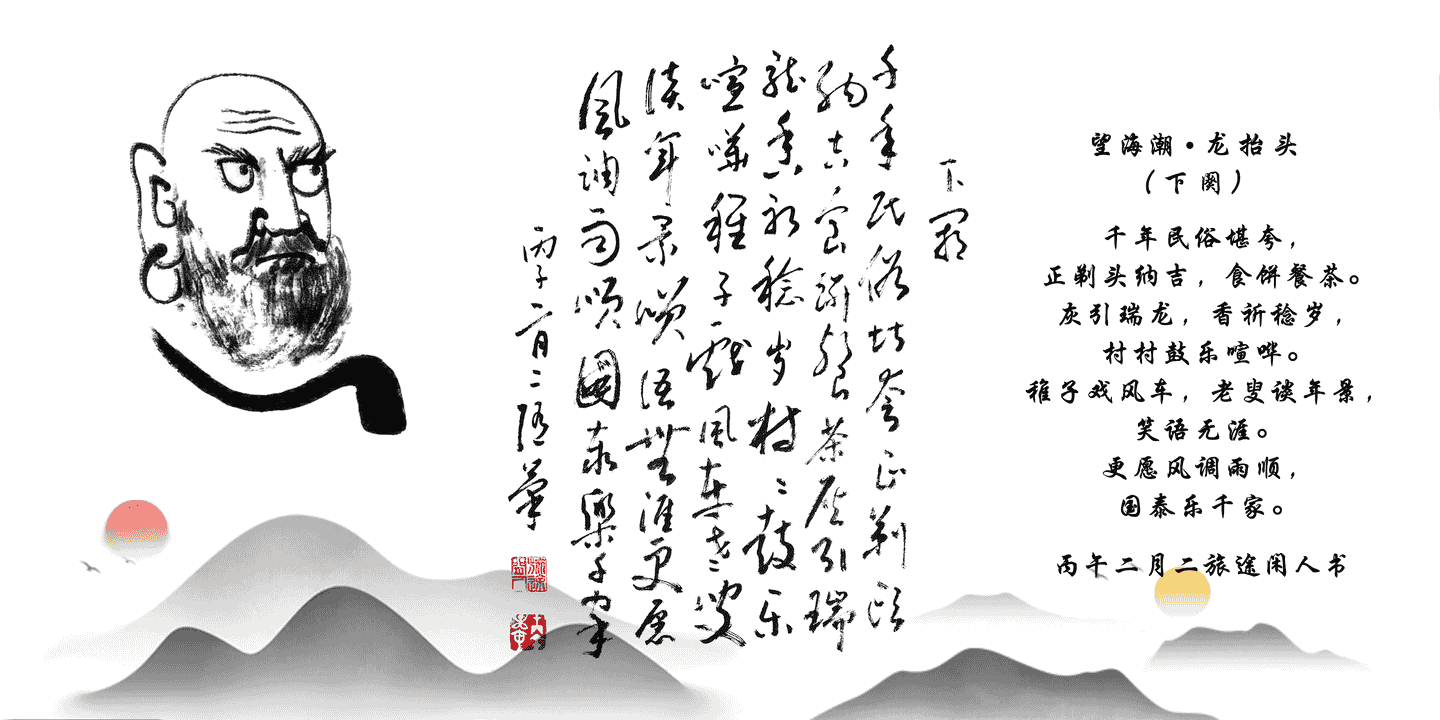 下阕
千年民俗堪夸正剃头
纳吉食饼餐茶灰引瑞
龙香祈稔岁村〻鼓乐
喧嘩稚子戏風車老叟
谈年景笑语無涯更愿
風调雨顺國泰樂千家
二月二
望海潮·龙抬头
（下阕）
千年民俗堪夸，
正剃头纳吉，食饼餐茶。
灰引瑞龙，香祈稔岁，
村村鼓乐喧哗。
稚子戏风车，老叟谈年景，
笑语无涯。
更愿风调雨顺，
国泰乐千家。
丙午二月二旅途闲人书